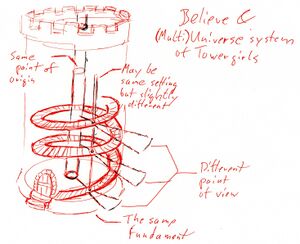 Believe &
(Multi)Universe system
of Towergirls
Same
point of
origin
May be
same setting
but slightly
different
Different
point
of view
The same
fundament